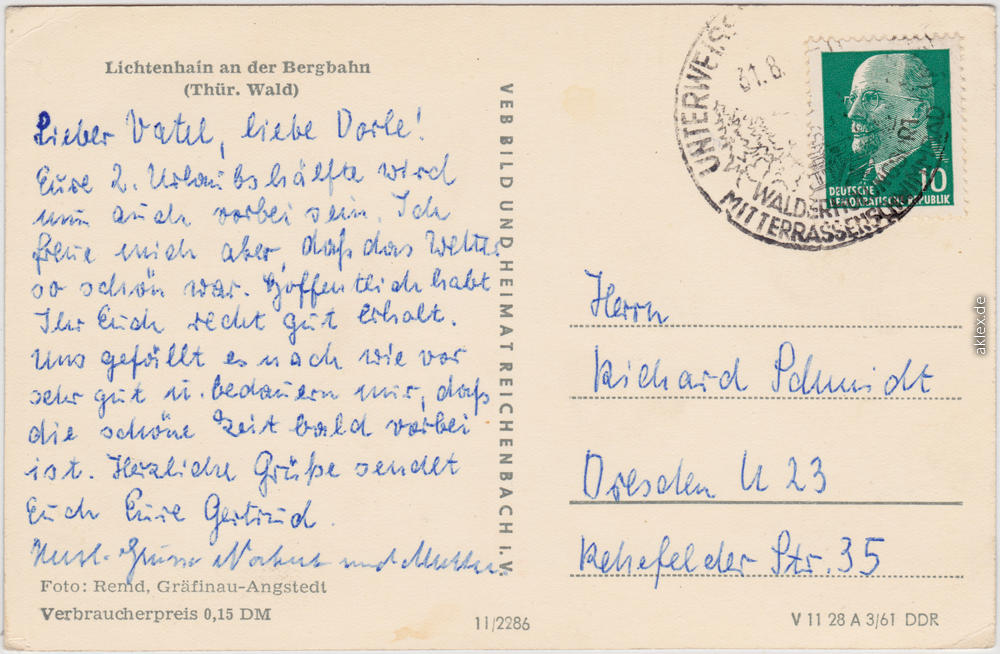 Lichtenhain an der Bergbahn
(Thür. Wald)
Lieber Vatel, liebe Dorle!
Eure 2. Urlaubshälfte wird
nun auch vorbei sein. Ich
freue mich aber, daß das Wetter
so schön war. Hoffentlich habt
Ihr Euch recht gut erholt.
Uns gefällt es nach wie vor
sehr gut u. bedauern nur, daß
die schöne Zeit bald vorbei
ist. Herzliche Grüße sendet
Euch Eure Gertrud.
Herzl. Grüsse und Mutter
Foto: Remd, Gräfinau-Angstedt
Verbraucherpreis 0,15 DM
VEB BILD UND HEIMAT REICHENBACH i. V.
11/2286
UNTERWEISS
31.8.
WALDERH
MITTERRASSENSCHWIMMBAD
DEUTSCHE
DEMOKRATISCHE REPUBLIK
10
Herrn
Richard Schmidt
Dresden N 23
Rehefelder Str. 35
V 11 28 A 3/61 DDR
aklex.de